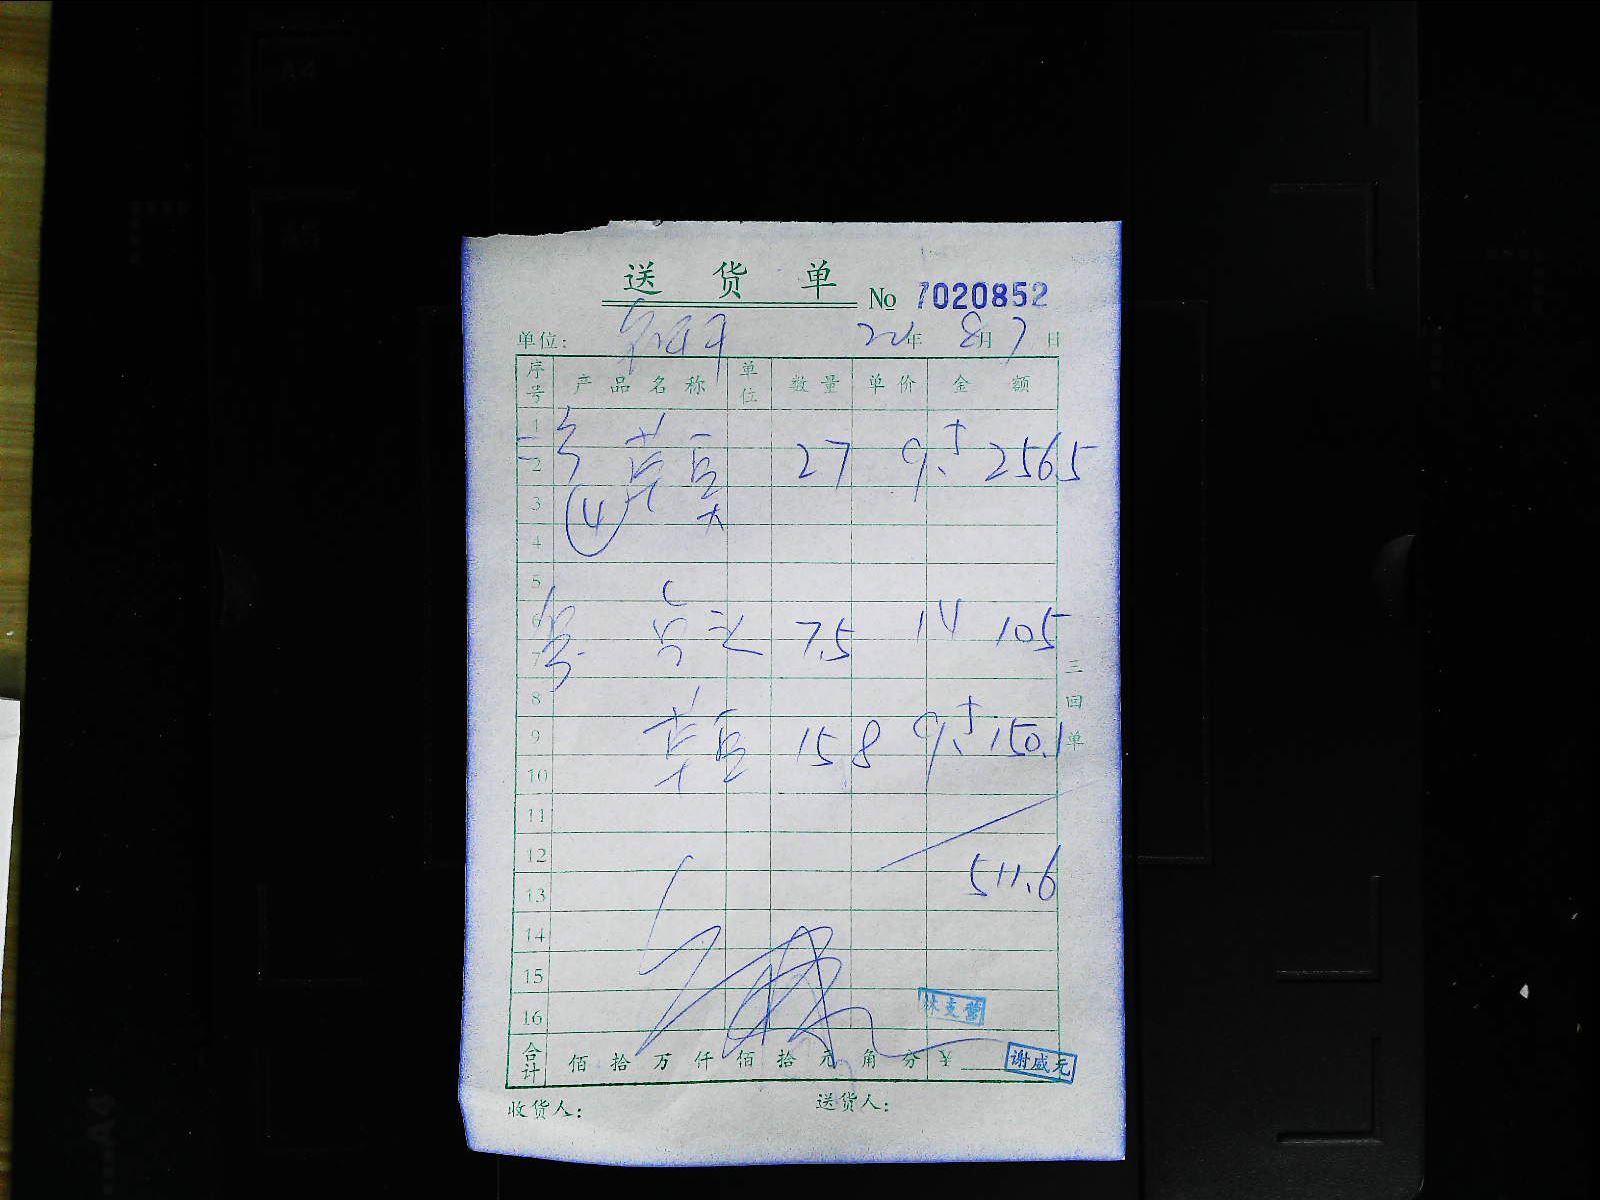 送 货 单 No 7020852
单位: 22年 8月7日
序号 产品名称 单位 数量 单价 金额
1
2 27 9.5 256.5
3 4
4
5
6 7.5 14 105
7
8
9 15.8 9.5 150.1
10
11
12
13 511.6
14
15
16
林支营
合计 佰 拾 万 仟 佰 拾 元 角 分 ¥
谢盛元
收货人: 送货人:
三回单
A4
A5
A4